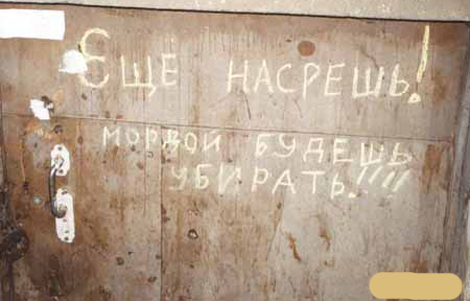 ЕЩЁ НАСРЕШЬ!
МОРДОЙ БУДЕШЬ
УБИРАТЬ!!!!